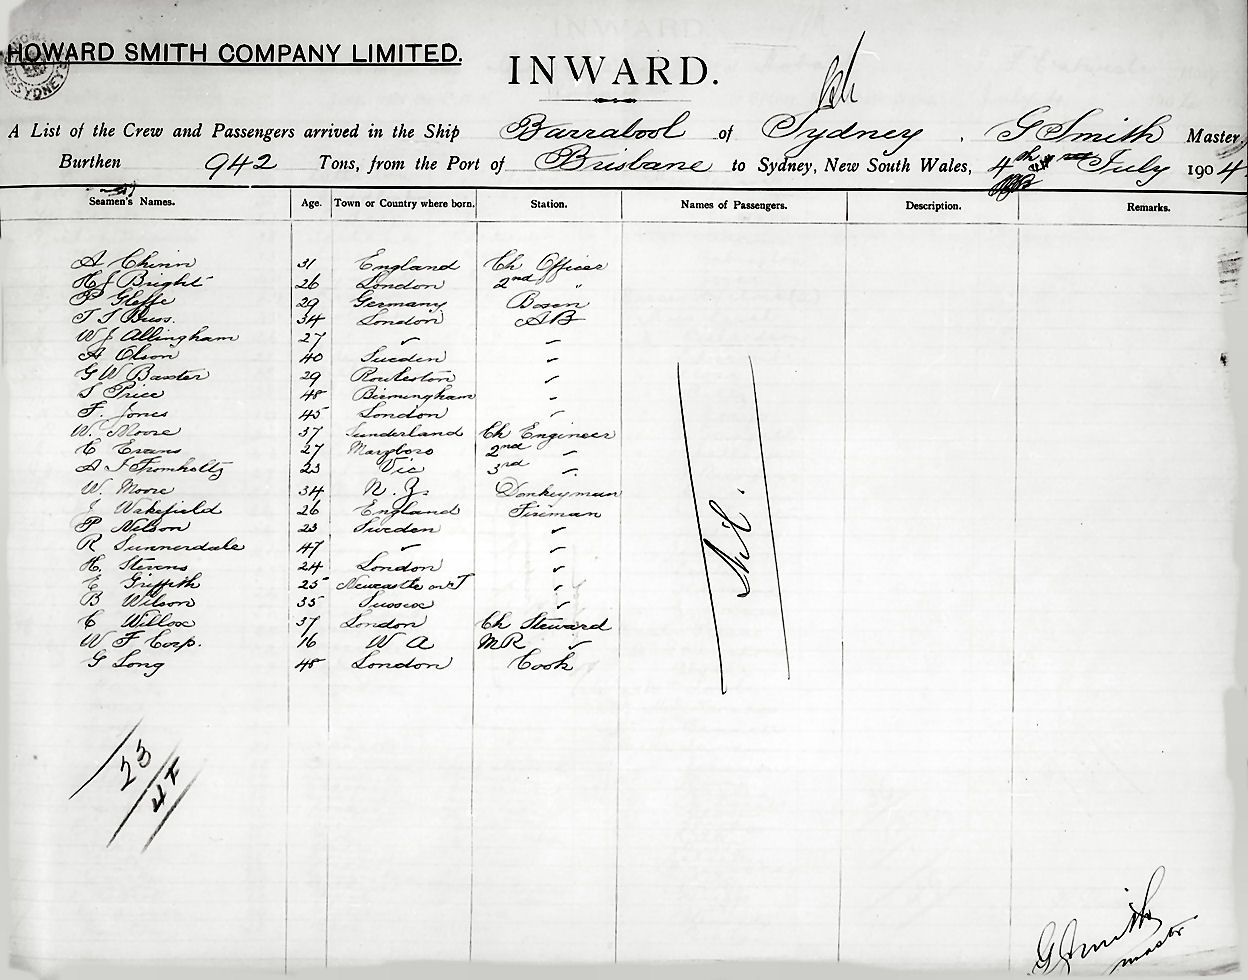 HOWARD SMITH COMPANY LIMITED.
INWARD.
A List of the Crew and Passengers arrived in the Ship Barrabool of Sydney . G Smith Master,
Burthen 942 Tons, from the Port of Brisbane to Sydney, New South Wales, 4th July 1904
Seamen's Names. Age. Town or Country where born. Station. Names of Passengers. Description. Remarks.
A Chinn 31 England Ch Officer
H J Bright 26 London 2nd "
P Gleffe 29 Germany Bosen
34 London AB
W J Allingham 27 " "
A Olson 40 Sweden "
G W Baxter 29 "
Price 48 Birmingham "
F. Jones 45 London "
W. Moore 37 Sunderland Ch Engineer
C Evans 27 Maryboro 2nd "
A F Fromholtz 23 Vic 3rd "
W. Moore 34 N. Z. Donkeyman
J Wakefield 26 England Fireman
P Nelson 23 Sweden "
R Sunnerdale 47 " "
H. Stevens 24 London "
E Griffith 25 Newcastle on T "
B Wilson 35 Sussex "
C Willox 37 London Ch Steward
W F Corp. 16 W A M R "
G Long 48 London Cook
Nil.
23
G Smith
master